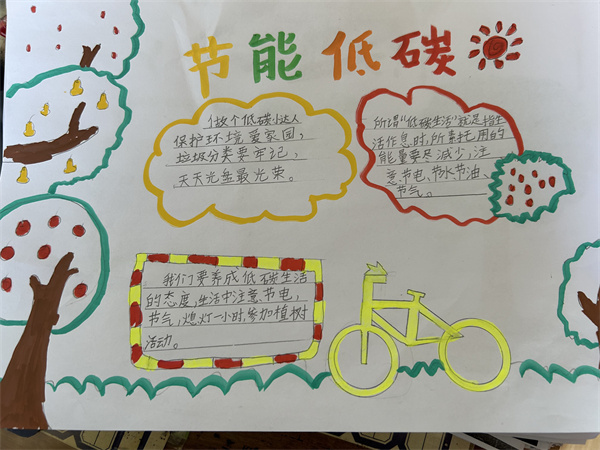 节能低碳
做个低碳小达人
保护环境爱家园，
垃圾分类要牢记，
天天光盘最光荣。
所谓“低碳生活”就是指生
活作息时，所耗用的
能量要尽减少，注
意节电、节水、节油、
节气。
我们要养成低碳生活
的态度，生活中注意节电，
节气，熄灯一小时，参加植树
活动。